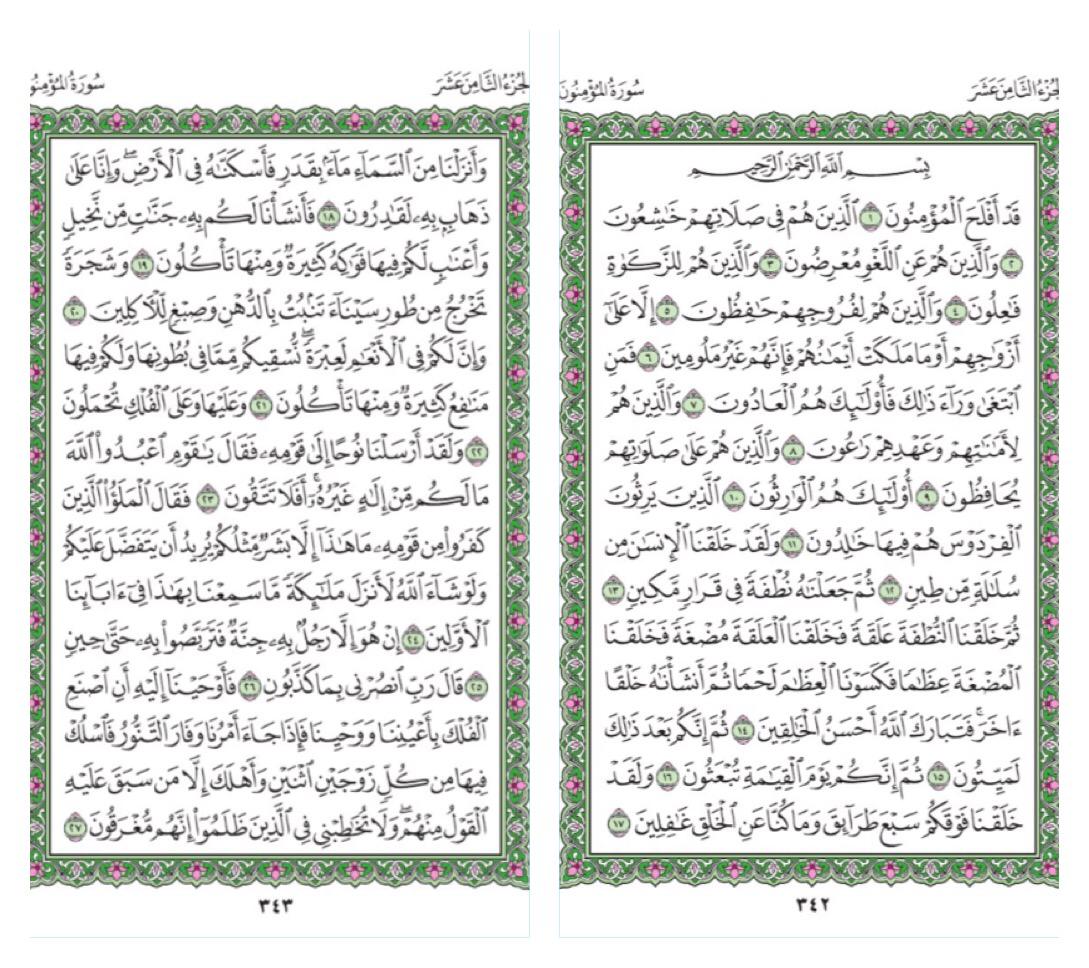 الجُزْءُ الثَّامِنَ عَشَرَ
سُورَةُ المُؤْمِنُونَ
بِسْمِ ٱللَّهِ ٱلرَّحْمَٰنِ ٱلرَّحِيمِ
قَدْ أَفْلَحَ ٱلْمُؤْمِنُونَ ١ ٱلَّذِينَ هُمْ فِى صَلَاتِهِمْ خَٰشِعُونَ
٢ وَٱلَّذِينَ هُمْ عَنِ ٱللَّغْوِ مُعْرِضُونَ ٣ وَٱلَّذِينَ هُمْ لِلزَّكَوٰةِ
فَٰعِلُونَ ٤ وَٱلَّذِينَ هُمْ لِفُرُوجِهِمْ حَٰفِظُونَ ٥ إِلَّا عَلَىٰٓ
أَزْوَٰجِهِمْ أَوْ مَا مَلَكَتْ أَيْمَٰنُهُمْ فَإِنَّهُمْ غَيْرُ مَلُومِينَ ٦ فَمَنِ
ٱبْتَغَىٰ وَرَآءَ ذَٰلِكَ فَأُو۟لَٰٓئِكَ هُمُ ٱلْعَادُونَ ٧ وَٱلَّذِينَ هُمْ
لِأَمَٰنَٰتِهِمْ وَعَهْدِهِمْ رَٰعُونَ ٨ وَٱلَّذِينَ هُمْ عَلَىٰ صَلَوَٰتِهِمْ
يُحَافِظُونَ ٩ أُو۟لَٰٓئِكَ هُمُ ٱلْوَٰرِثُونَ ١٠ ٱلَّذِينَ يَرِثُونَ
ٱلْفِرْدَوْسَ هُمْ فِيهَا خَٰلِدُونَ ١١ وَلَقَدْ خَلَقْنَا ٱلْإِنسَٰنَ مِن
سُلَٰلَةٍ مِّن طِينٍ ١٢ ثُمَّ جَعَلْنَٰهُ نُطْفَةً فِى قَرَارٍ مَّكِينٍ ١٣
ثُمَّ خَلَقْنَا ٱلنُّطْفَةَ عَلَقَةً فَخَلَقْنَا ٱلْعَلَقَةَ مُضْغَةً فَخَلَقْنَا
ٱلْمُضْغَةَ عِظَٰمًا فَكَسَوْنَا ٱلْعِظَٰمَ لَحْمًا ثُمَّ أَنشَأْنَٰهُ خَلْقًا
ءَاخَرَ ۚ فَتَبَارَكَ ٱللَّهُ أَحْسَنُ ٱلْخَٰلِقِينَ ١٤ ثُمَّ إِنَّكُم بَعْدَ ذَٰلِكَ
لَمَيِّتُونَ ١٥ ثُمَّ إِنَّكُمْ يَوْمَ ٱلْقِيَٰمَةِ تُبْعَثُونَ ١٦ وَلَقَدْ
خَلَقْنَا فَوْقَكُمْ سَبْعَ طَرَآئِقَ وَمَا كُنَّا عَنِ ٱلْخَلْقِ غَٰفِلِينَ ١٧
٣٤٢
الجُزْءُ الثَّامِنَ عَشَرَ
سُورَةُ المُؤْمِنُو
وَأَنزَلْنَا مِنَ ٱلسَّمَآءِ مَآءًۢ بِقَدَرٍ فَأَسْكَنَّٰهُ فِى ٱلْأَرْضِ ۖ وَإِنَّا عَلَىٰ
ذَهَابٍۭ بِهِۦ لَقَٰدِرُونَ ١٨ فَأَنشَأْنَا لَكُم بِهِۦ جَنَّٰتٍ مِّن نَّخِيلٍ
وَأَعْنَٰبٍ لَّكُمْ فِيهَا فَوَٰكِهُ كَثِيرَةٌ وَمِنْهَا تَأْكُلُونَ ١٩ وَشَجَرَةً
تَخْرُجُ مِن طُورِ سَيْنَآءَ تَنۢبُتُ بِٱلدُّهْنِ وَصِبْغٍ لِّلْءَاكِلِينَ ٢٠
وَإِنَّ لَكُمْ فِى ٱلْأَنْعَٰمِ لَعِبْرَةً ۖ نُّسْقِيكُم مِّمَّا فِى بُطُونِهَا وَلَكُمْ فِيهَا
مَنَٰفِعُ كَثِيرَةٌ وَمِنْهَا تَأْكُلُونَ ٢١ وَعَلَيْهَا وَعَلَى ٱلْفُلْكِ تُحْمَلُونَ
٢٢ وَلَقَدْ أَرْسَلْنَا نُوحًا إِلَىٰ قَوْمِهِۦ فَقَالَ يَٰقَوْمِ ٱعْبُدُوا۟ ٱللَّهَ
مَا لَكُم مِّنْ إِلَٰهٍ غَيْرُهُۥٓ ۖ أَفَلَا تَتَّقُونَ ٢٣ فَقَالَ ٱلْمَلَؤُا۟ ٱلَّذِينَ
كَفَرُوا۟ مِن قَوْمِهِۦ مَا هَٰذَآ إِلَّا بَشَرٌ مِّثْلُكُمْ يُرِيدُ أَن يَتَفَضَّلَ عَلَيْكُمْ
وَلَوْ شَآءَ ٱللَّهُ لَأَنزَلَ مَلَٰٓئِكَةً مَّا سَمِعْنَا بِهَٰذَا فِىٓ ءَابَآئِنَا
ٱلْأَوَّلِينَ ٢٤ إِنْ هُوَ إِلَّا رَجُلٌۢ بِهِۦ جِنَّةٌ فَتَرَبَّصُوا۟ بِهِۦ حَتَّىٰ حِينٍ
٢٥ قَالَ رَبِّ ٱنصُرْنِى بِمَا كَذَّبُونِ ٢٦ فَأَوْحَيْنَآ إِلَيْهِ أَنِ ٱصْنَعِ
ٱلْفُلْكَ بِأَعْيُنِنَا وَوَحْيِنَا فَإِذَا جَآءَ أَمْرُنَا وَفَارَ ٱلتَّنُّورُ فَٱسْلُكْ
فِيهَا مِن كُلٍّ زَوْجَيْنِ ٱثْنَيْنِ وَأَهْلَكَ إِلَّا مَن سَبَقَ عَلَيْهِ
ٱلْقَوْلُ مِنْهُمْ ۖ وَلَا تُخَٰطِبْنِى فِى ٱلَّذِينَ ظَلَمُوٓا۟ إِنَّهُم مُّغْرَقُونَ ٢٧
٣٤٣